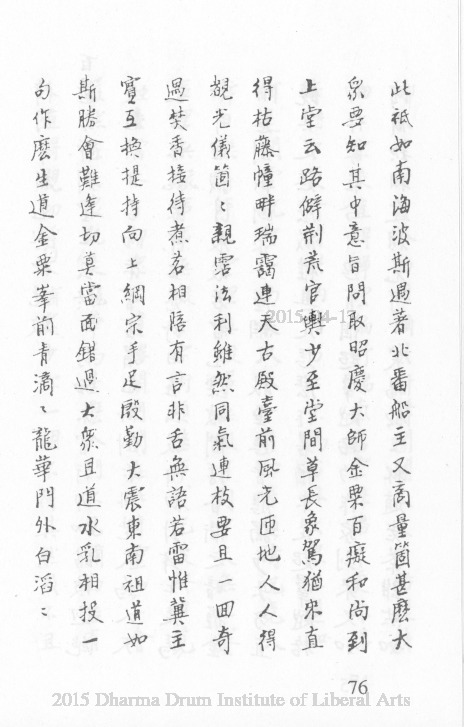 此祇如南海波斯遇著北番船主又商量箇甚麼大
眾要知其中意旨問取昭慶大師金粟百癡和尚到
上堂云路僻荆荒官輿少至堂間草長象駕猶來直
得枯藤幢畔瑞靄連天古殿臺前風光匝地人人得
覩光儀箇〻親霑法利雖然同氣連枝要且一回奇
遇焚香接待煮茗相陪有言非舌無語若雷惟冀主
賓互換提持向上綱宗手足殷勤大震東南祖道如
斯勝會難逢切莫當面錯過大眾且道水乳相投一
句作麼生道金粟峯前青滴〻龍華門外白滔〻
76
2015-04-17
2015 Dharma Drum Institute of Liberal Arts